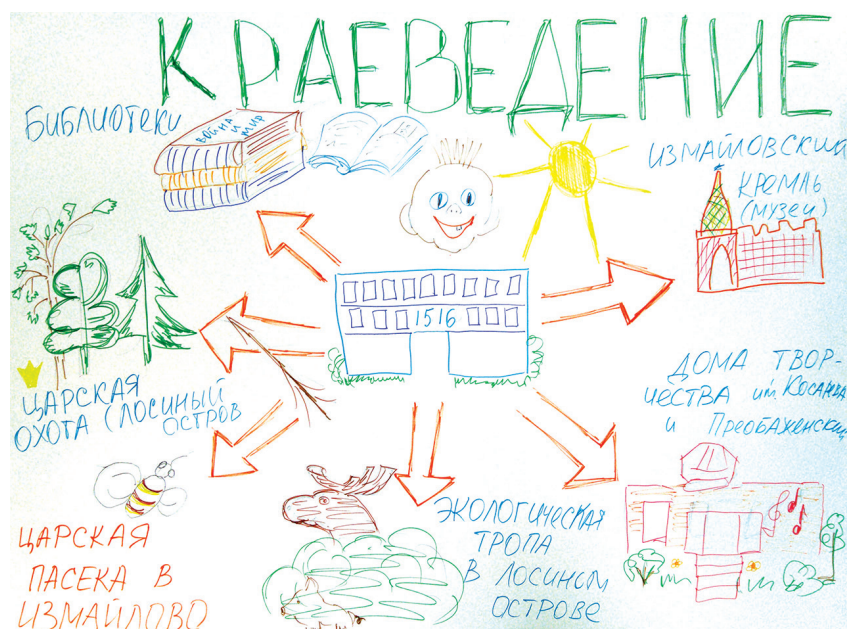 КРАЕВЕДЕНИЕ
БИБЛИОТЕКИ
ВОЙНА
И
МИР
ИЗМАЙЛОВСКИЙ
КРЕМЛЬ
(МУЗЕИ)
1516
ЦАРСКАЯ
ОХОТА (ЛОСИНЫЙ
ОСТРОВ
ДОМА ТВОР-
ЧЕСТВА им. Косарева
и Преображенский
ЦАРСКАЯ
ПАСЕКА В
ИЗМАЙЛОВО
ЭКОЛОГИЧЕСКАЯ
ТРОПА
В ЛОСИНОМ
ОСТРОВЕ